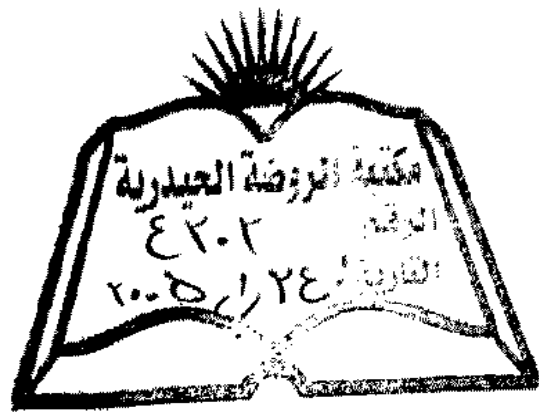 مكتبة الروضة الحيدرية
الرقم ٤٢٠٢
التاريخ ٢٤/١/٢٠٠٥